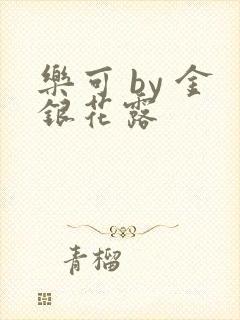 樂可 by 金
銀花露
青榴